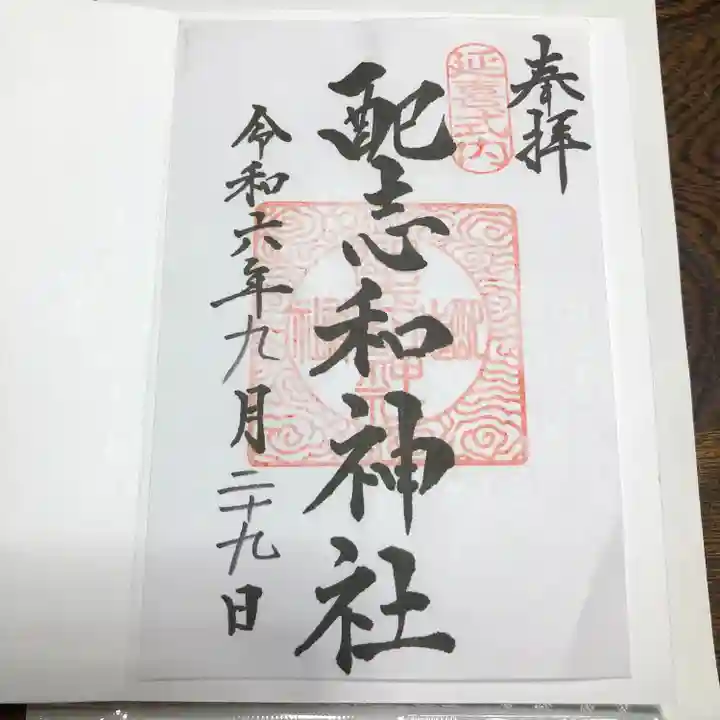 奉拝
延喜式内
配志和神社
令和六年九月二十九日